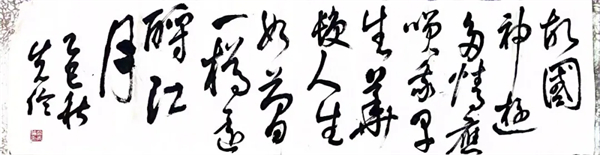 故國
神遊
多情應
笑我早
生華
髮人生
如夢
一樽還
酹江
月
乙巳秋